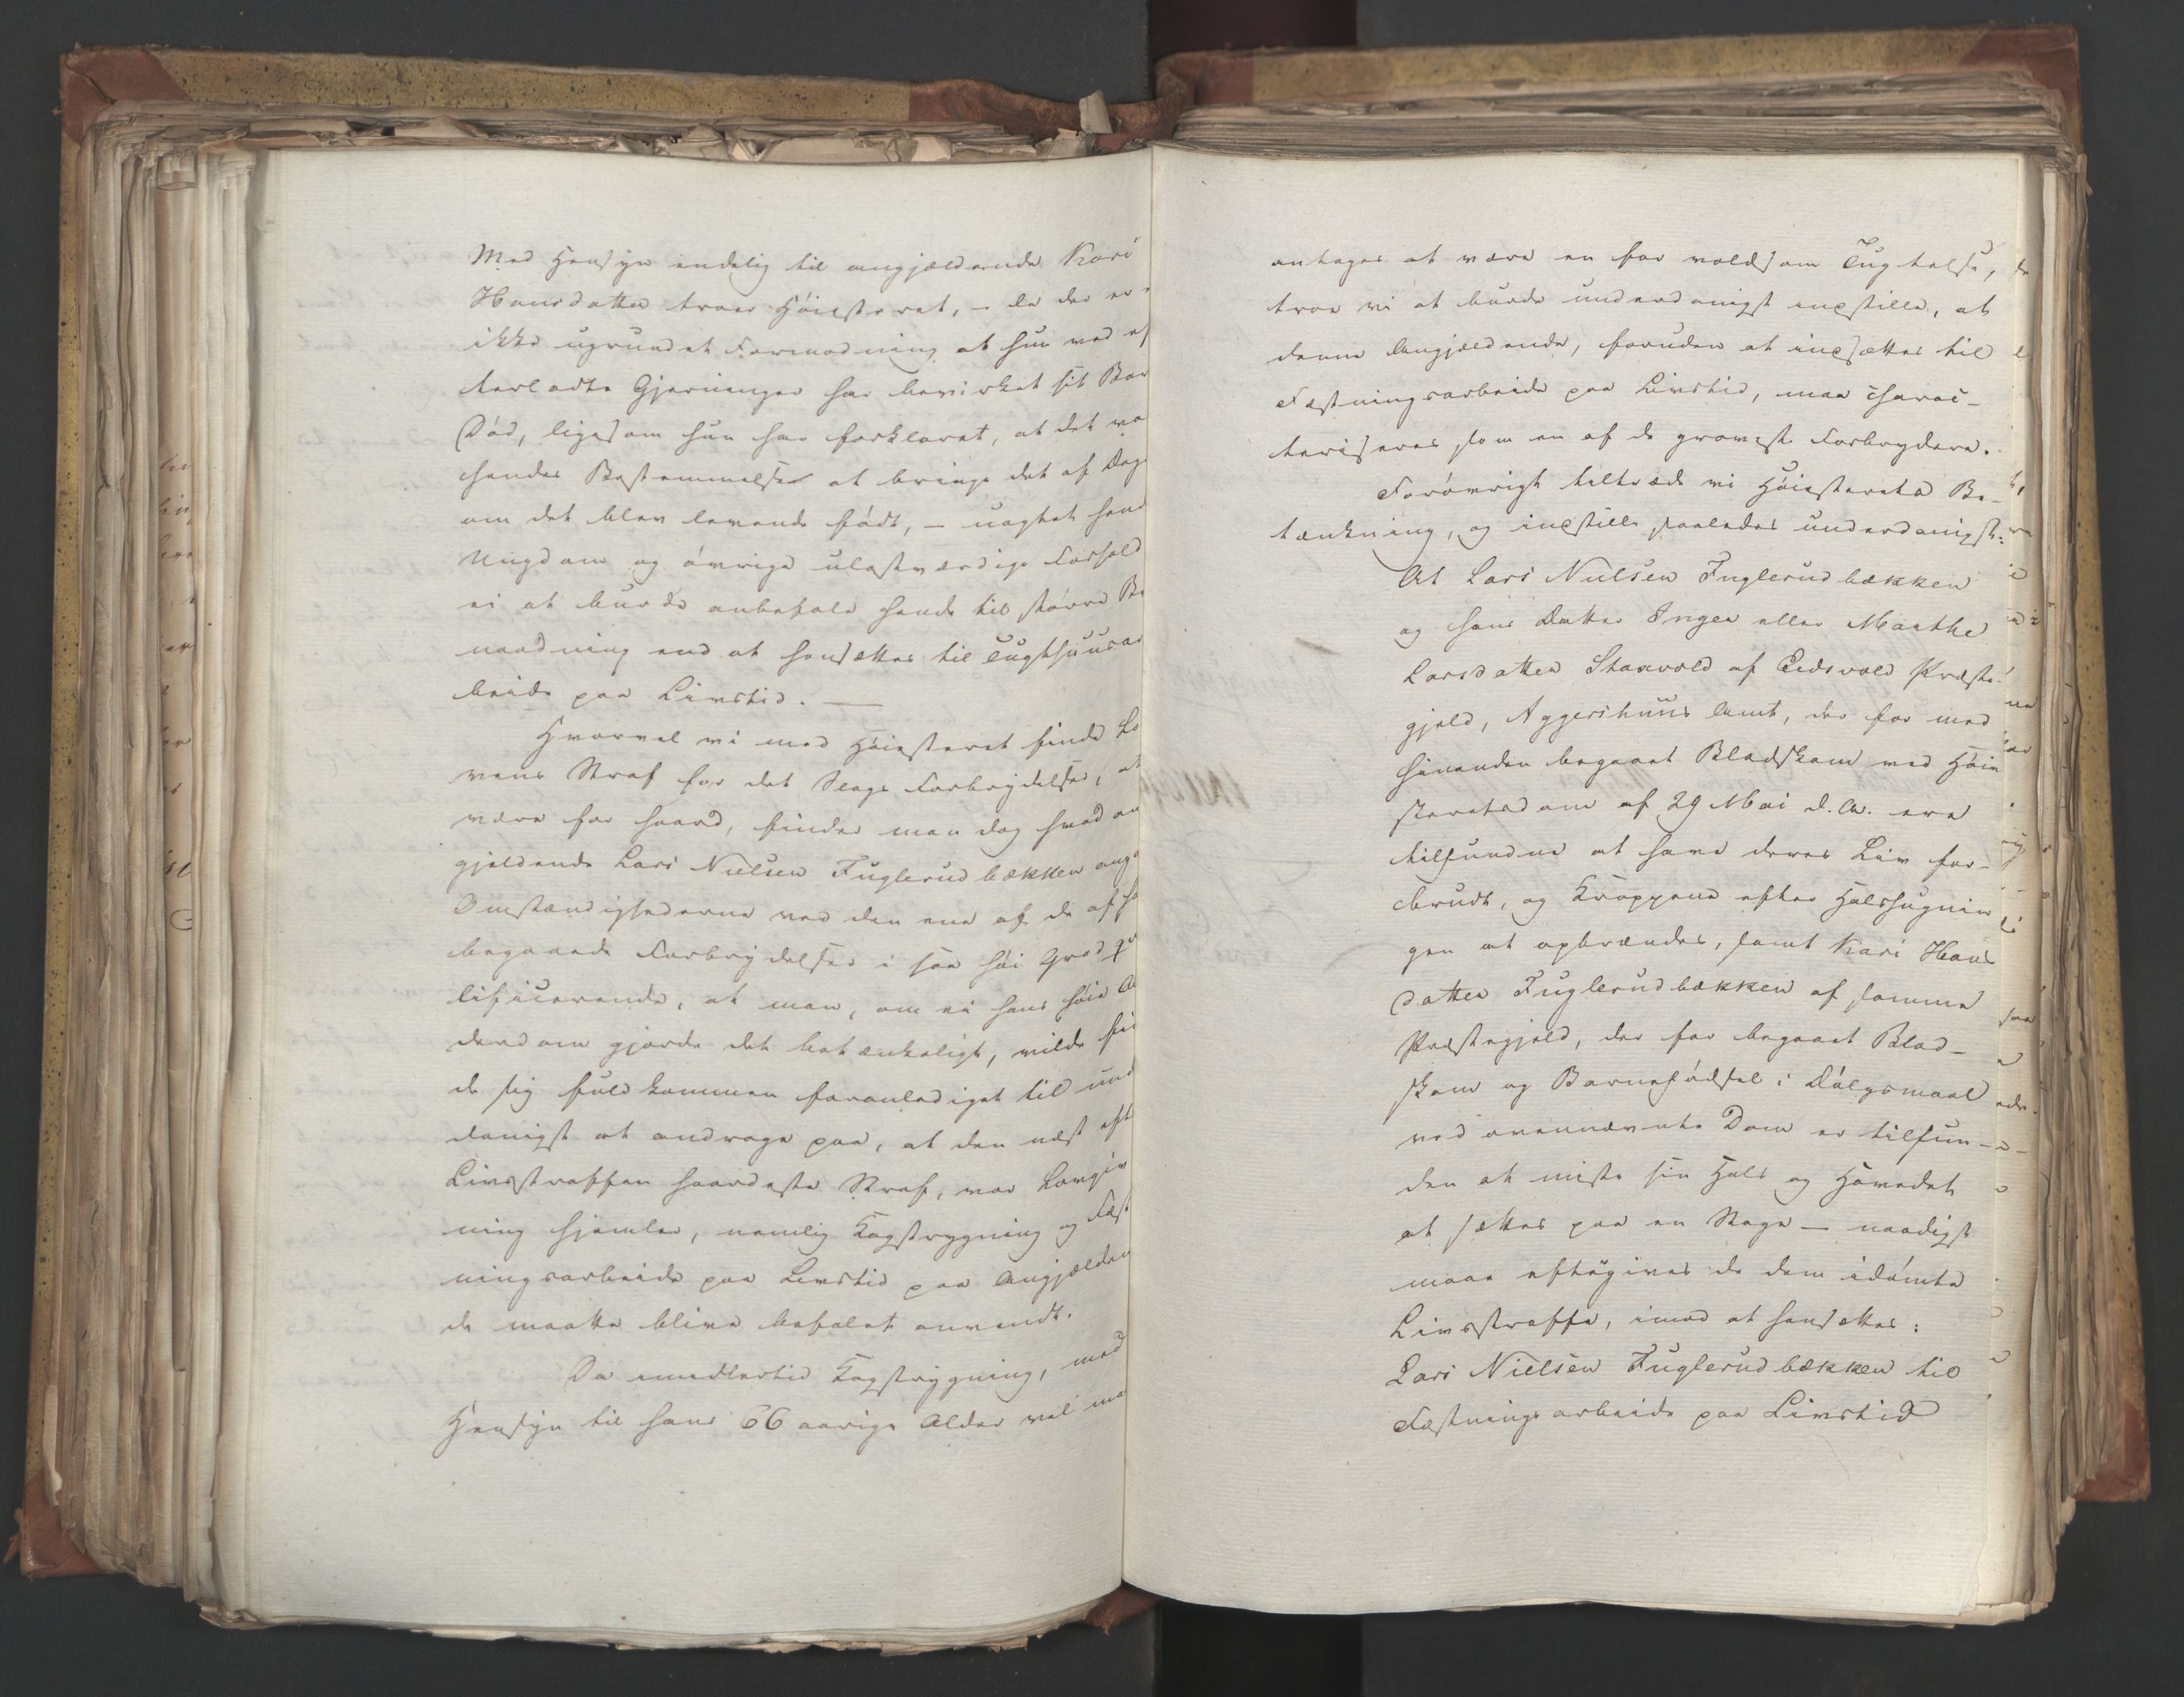 Med Hensyn endelig til angjældende Kari
Hansdatter troer Höiesteret, – da der er
ikke ugrundet Formodning at hun ved ef
terladte Gjerninger har bevirket sit Bar
Död, ligesom hun har forklaret, at det va
hendes Bestemmelse at bringe det af Dage
om det blev levende födt, – uagtet hend
Ungdom og övrige ulastværdige Forhold
ei at burde anbefale hende til större Be
naadning end at hensættes til Tugthuusar
beide paa Livstid. —
Hvorvel vi med Höiesteret finde Lo
vens Straf for det Slags Forbrydelser, at
være for haard, finder man dog hvad an
gjeldende Lars Nielsen Fuglerudbækken ang
Omstændighederne ved den ene af de af ha
begaaede Forbrydelser i saa höi Grad qva
lificerende, at man, om ei hans höie Al
derdom gjorde det betænkeligt, vilde fin
de sig fuldkommen foranlediget til und
danigst at andrage paa, at den næst eft
Livsstraffen haardeste Straf, vor Lovgiv
ning hjemler, nemlig Kagstrygning og Fæst
ningsarbeide paa Livstid paa Angjælden
de maatte blive befalet anvendt.
Da imidlertid Kagstrygning, med
Hensyn til hans 66 aarige Alder vel maa
antages at være en for voldsom Tugtelse,
troe vi at burde underdanigst indstille, at
denne Angjældende, foruden at indsættes til
Fæstningsarbeide paa Livstid, maa charac-
teriseres som en af de groveste Forbrydere.
Foróvrigt tiltræde vi Höiesterets Be-
tænkning, og indstille saaledes underdanigst:
At Lars Nielsen Fuglerudbækken
og hans Datter Inger eller Marthe
Larsdatter Staxvold af Eidsvold Præste-
gjeld, Aggershuus Amt, der for med
hinanden begaaet Blodskam ved Höie
steretsdom af 29 Mai d. A. ere
tilfundne at have deres Liv for-
brudt, og Kroppene efter Halshugnin
gen at opbrændes, samt Kari Hans
datter Fuglerudbækken af samme
Præstegjeld, der for begaaet Blod-
skam og Barnefödsel i Dölgsmaal
ved ovennævnte Dom er tilfun-
den at miste sin Hals og Hovedet
at sættes paa en Stage – naadigst
maae eftergives de dem idömte
Livsstraffe, imod at hensættes:
Lars Nielsen Fuglerudbækken til
Fæstningsarbeide paa Livstid